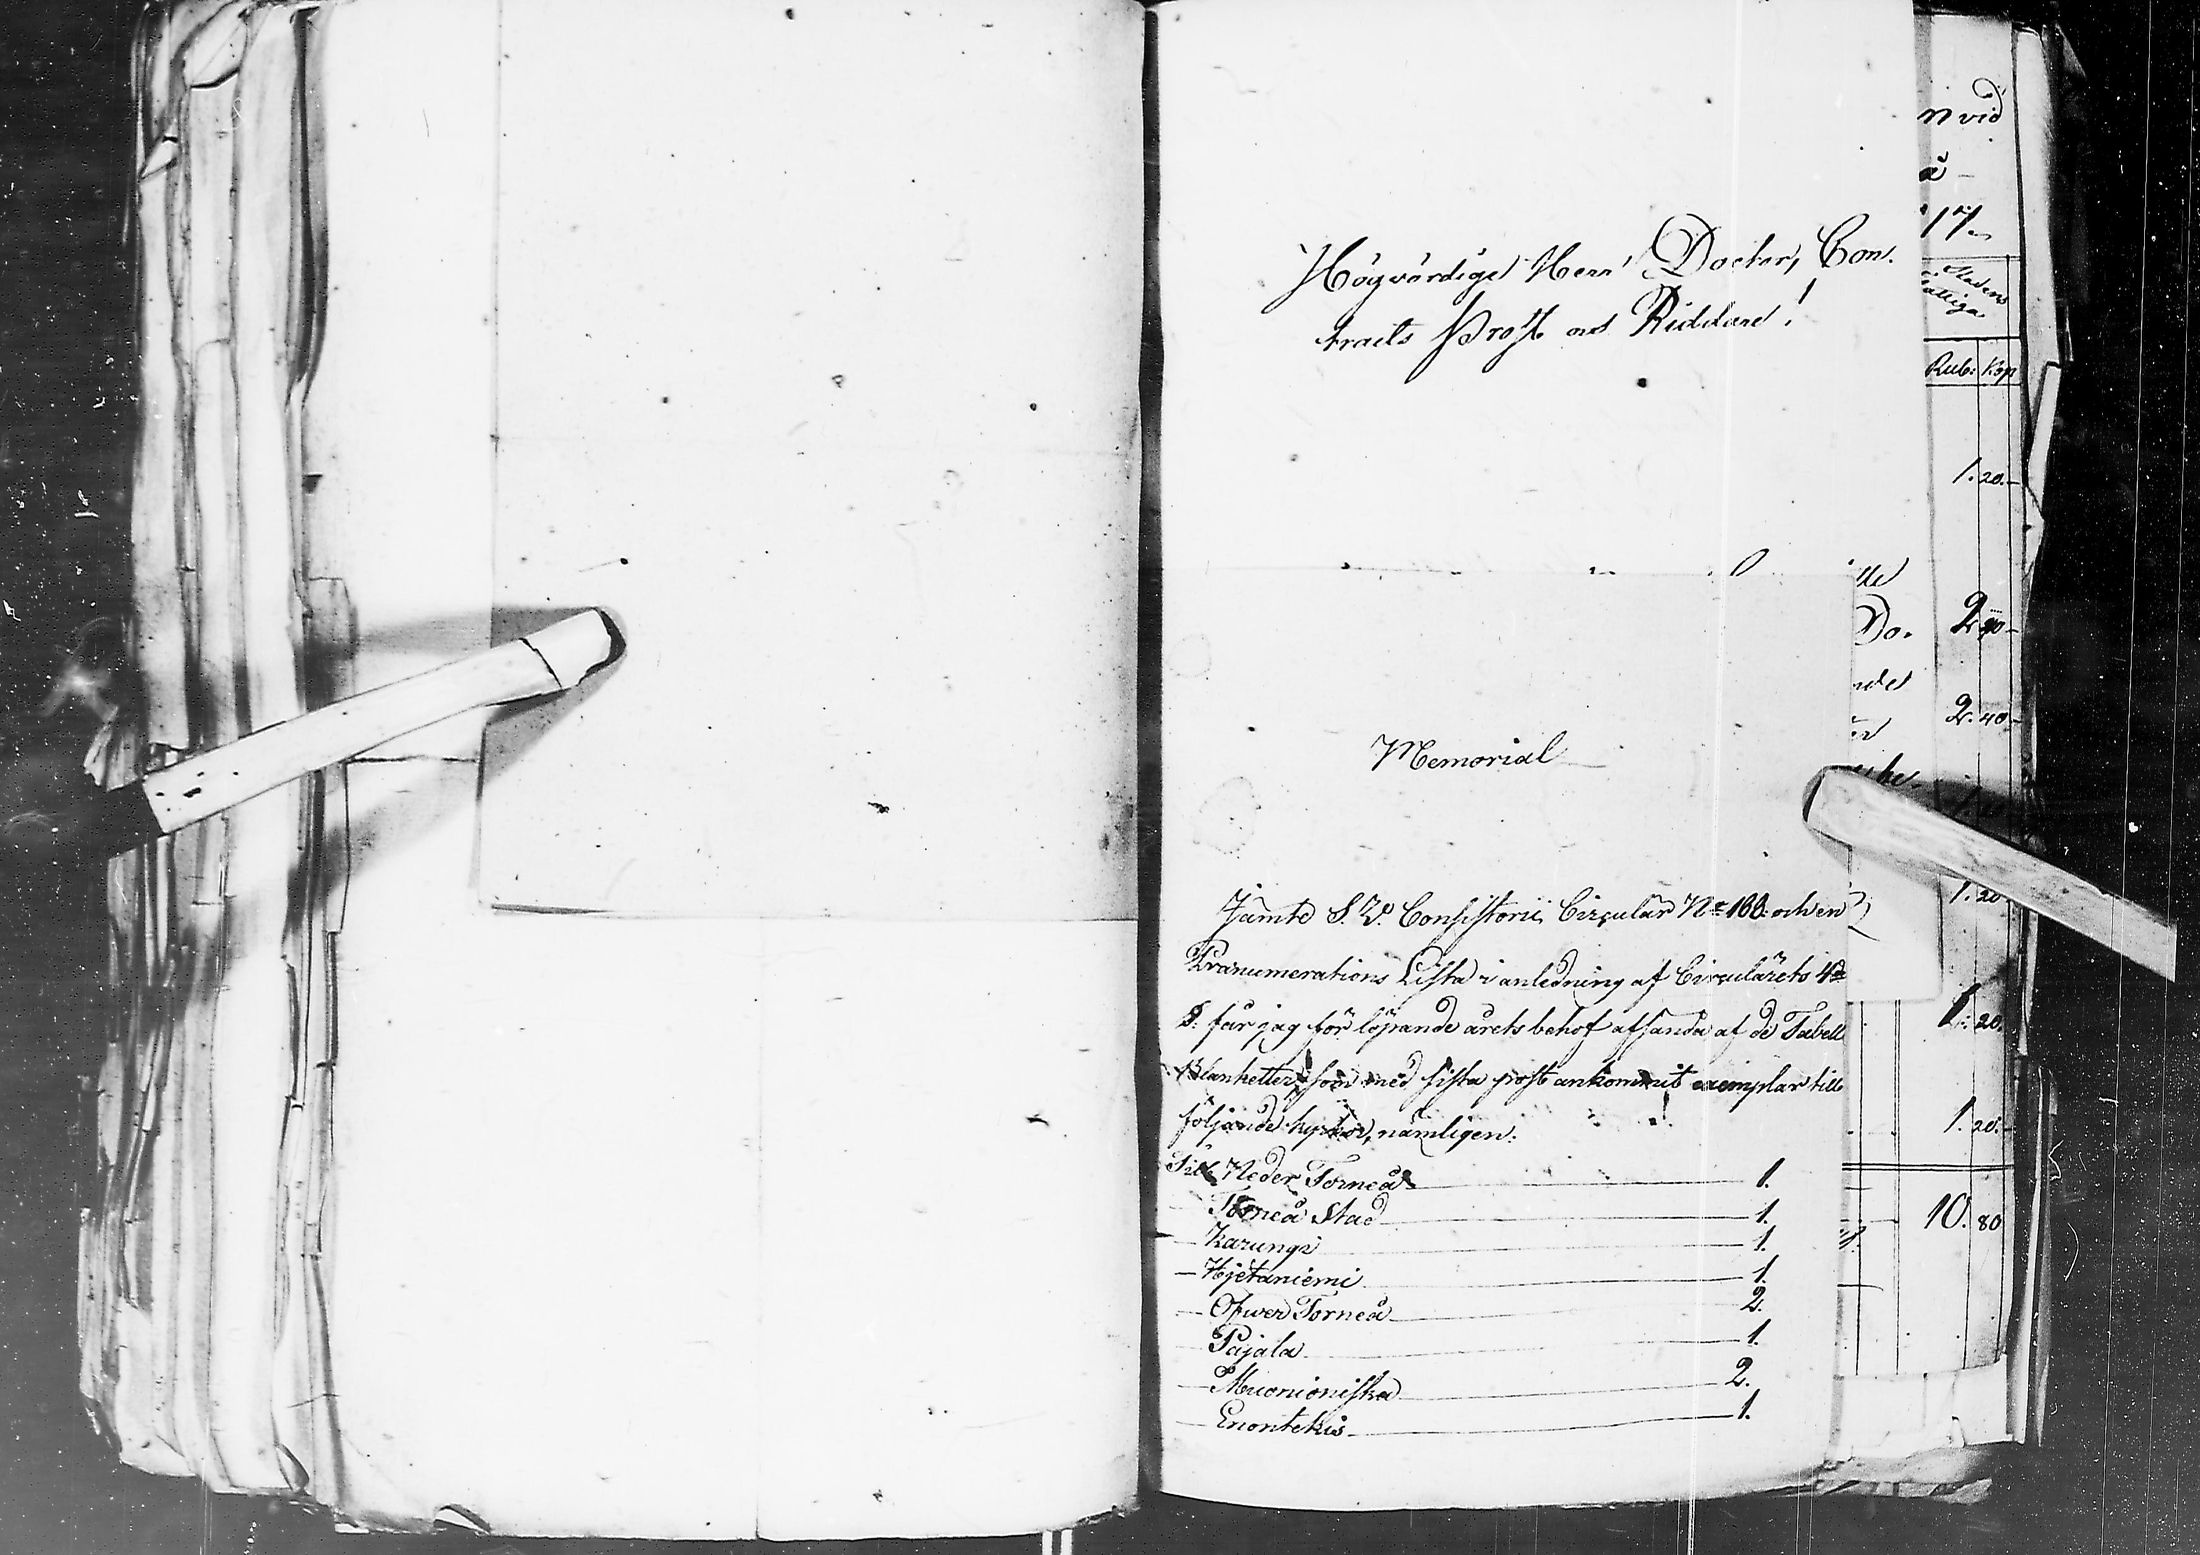 Högvördige Herr Doctor, Con-
tracts Prost och Riddare!
Memorial
Jämte S. V. Consistorii Circulär No 160. och en
Pränumerations Lista i anledning af Circulärets 4de
§. får jag för löpande årets behof afsända af de Tabell
Blanketter, som med sista post ankommit exemplar till
följande kyrkor, nämligen.
Till Neder Torneå 1.
Torneå Stad 1.
Karungi 1.
Hjetaniemi 1.
Öfwer Torneå 2.
Pajala 1.
Muonioniska 2.
Enontekis 1.
vid
17.
Rub. Kop
1. 20.
2. 40.
1. 20
1. 20.
1. 20.
10. 80